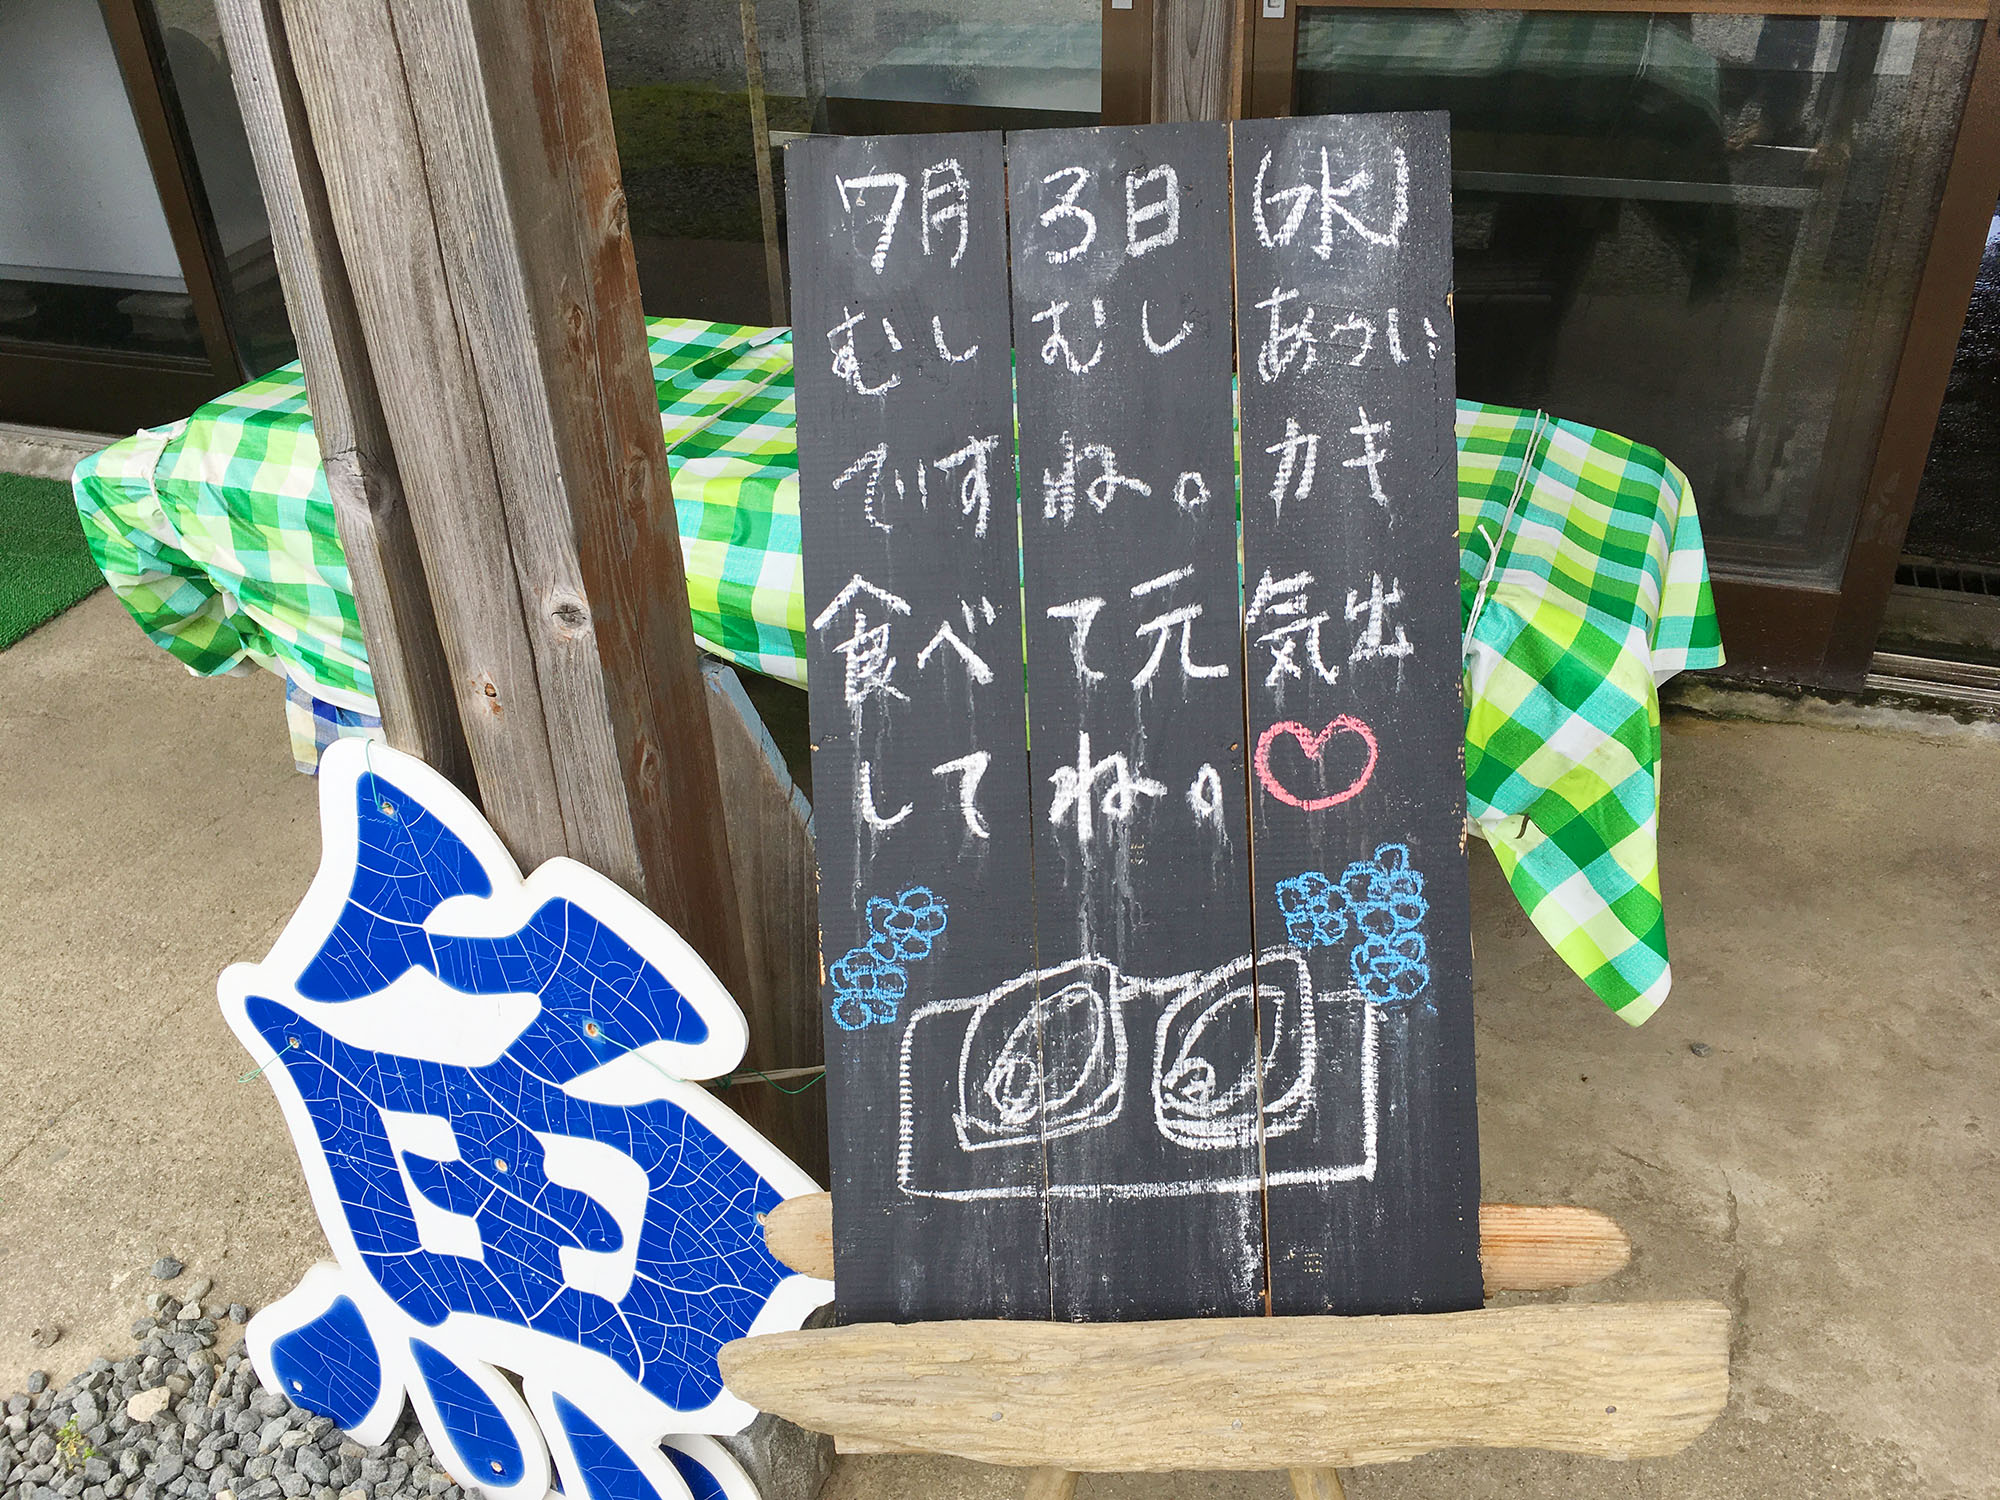 7月3日(水)
むしむしあつい
ですね。カキ
食べて元気出
してね。
魚